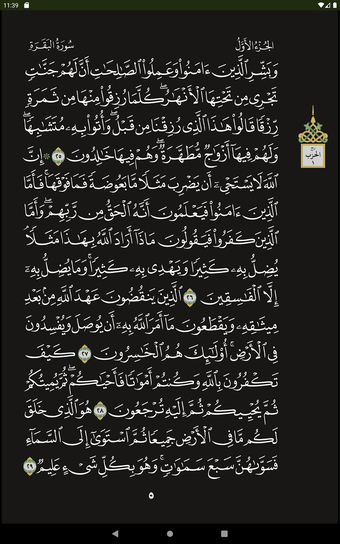 11:39
الجُزءُ الأَوَّلُ
سُورَةُ البَقَرَةِ
وَبَشِّرِ ٱلَّذِينَ ءَامَنُوا۟ وَعَمِلُوا۟ ٱلصَّـٰلِحَـٰتِ أَنَّ لَهُمْ جَنَّـٰتٍ
تَجْرِى مِن تَحْتِهَا ٱلْأَنْهَـٰرُ ۖ كُلَّمَا رُزِقُوا۟ مِنْهَا مِن ثَمَرَةٍ
رِّزْقًا ۙ قَالُوا۟ هَـٰذَا ٱلَّذِى رُزِقْنَا مِن قَبْلُ ۖ وَأُتُوا۟ بِهِۦ مُتَشَـٰبِهًا ۖ
وَلَهُمْ فِيهَآ أَزْوَٰجٌ مُّطَهَّرَةٌ ۖ وَهُمْ فِيهَا خَـٰلِدُونَ ٢٥ ۞ إِنَّ
ٱللَّهَ لَا يَسْتَحْىِۦٓ أَن يَضْرِبَ مَثَلًا مَّا بَعُوضَةً فَمَا فَوْقَهَا ۚ فَأَمَّا
ٱلَّذِينَ ءَامَنُوا۟ فَيَعْلَمُونَ أَنَّهُ ٱلْحَقُّ مِن رَّبِّهِمْ ۖ وَأَمَّا
ٱلَّذِينَ كَفَرُوا۟ فَيَقُولُونَ مَاذَآ أَرَادَ ٱللَّهُ بِهَـٰذَا مَثَلًا ۘ
يُضِلُّ بِهِۦ كَثِيرًا وَيَهْدِى بِهِۦ كَثِيرًا ۚ وَمَا يُضِلُّ بِهِۦٓ
إِلَّا ٱلْفَـٰسِقِينَ ٢٦ ٱلَّذِينَ يَنقُضُونَ عَهْدَ ٱللَّهِ مِنۢ بَعْدِ
مِيثَـٰقِهِۦ وَيَقْطَعُونَ مَآ أَمَرَ ٱللَّهُ بِهِۦٓ أَن يُوصَلَ وَيُفْسِدُونَ
فِى ٱلْأَرْضِ ۚ أُو۟لَـٰٓئِكَ هُمُ ٱلْخَـٰسِرُونَ ٢٧ كَيْفَ
تَكْفُرُونَ بِٱللَّهِ وَكُنتُمْ أَمْوَٰتًا فَأَحْيَـٰكُمْ ۖ ثُمَّ يُمِيتُكُمْ
ثُمَّ يُحْيِيكُمْ ثُمَّ إِلَيْهِ تُرْجَعُونَ ٢٨ هُوَ ٱلَّذِى خَلَقَ
لَكُم مَّا فِى ٱلْأَرْضِ جَمِيعًا ثُمَّ ٱسْتَوَىٰٓ إِلَى ٱلسَّمَآءِ
فَسَوَّىٰهُنَّ سَبْعَ سَمَـٰوَٰتٍ ۚ وَهُوَ بِكُلِّ شَىْءٍ عَلِيمٌ ٢٩
الحزب
١
٥